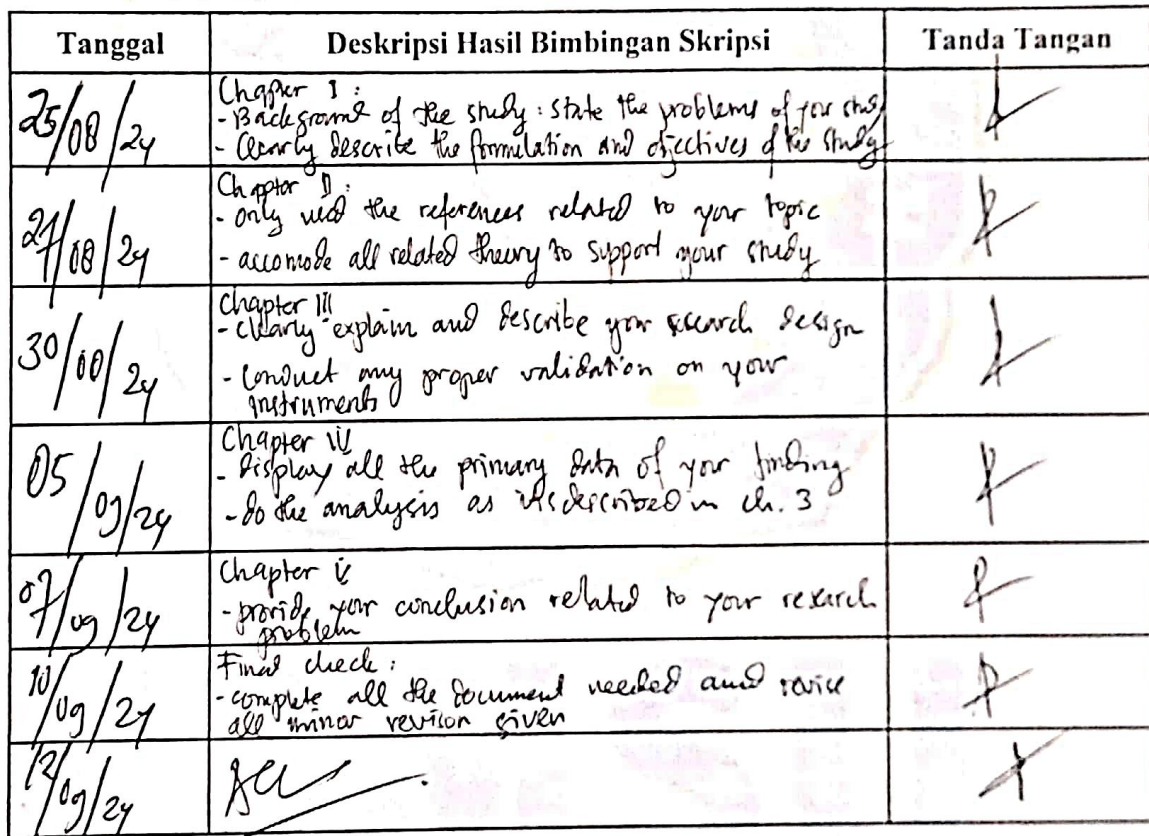 Tanggal
Deskripsi Hasil Bimbingan Skripsi
Tanda Tangan
25/08/24
Chapter I :
- Background of the study : state the problems of your study
- Clearly describe the formulation and objectives of the study
27/08/24
Chapter II :
- only used the references related to your topic
- accomode all related theory to support your study
30/08/24
Chapter III
- clearly explain and describe your research design
- conduct any proper validation on your
instruments
05/09/24
Chapter IV
- display all the primary data of your finding
- do the analysis as it is described in ch. 3
07/09/24
Chapter V
- provide your conclusion related to your research
problem
10/09/24
Final check :
- complete all the document needed and revise
all minor revision given
12/09/24